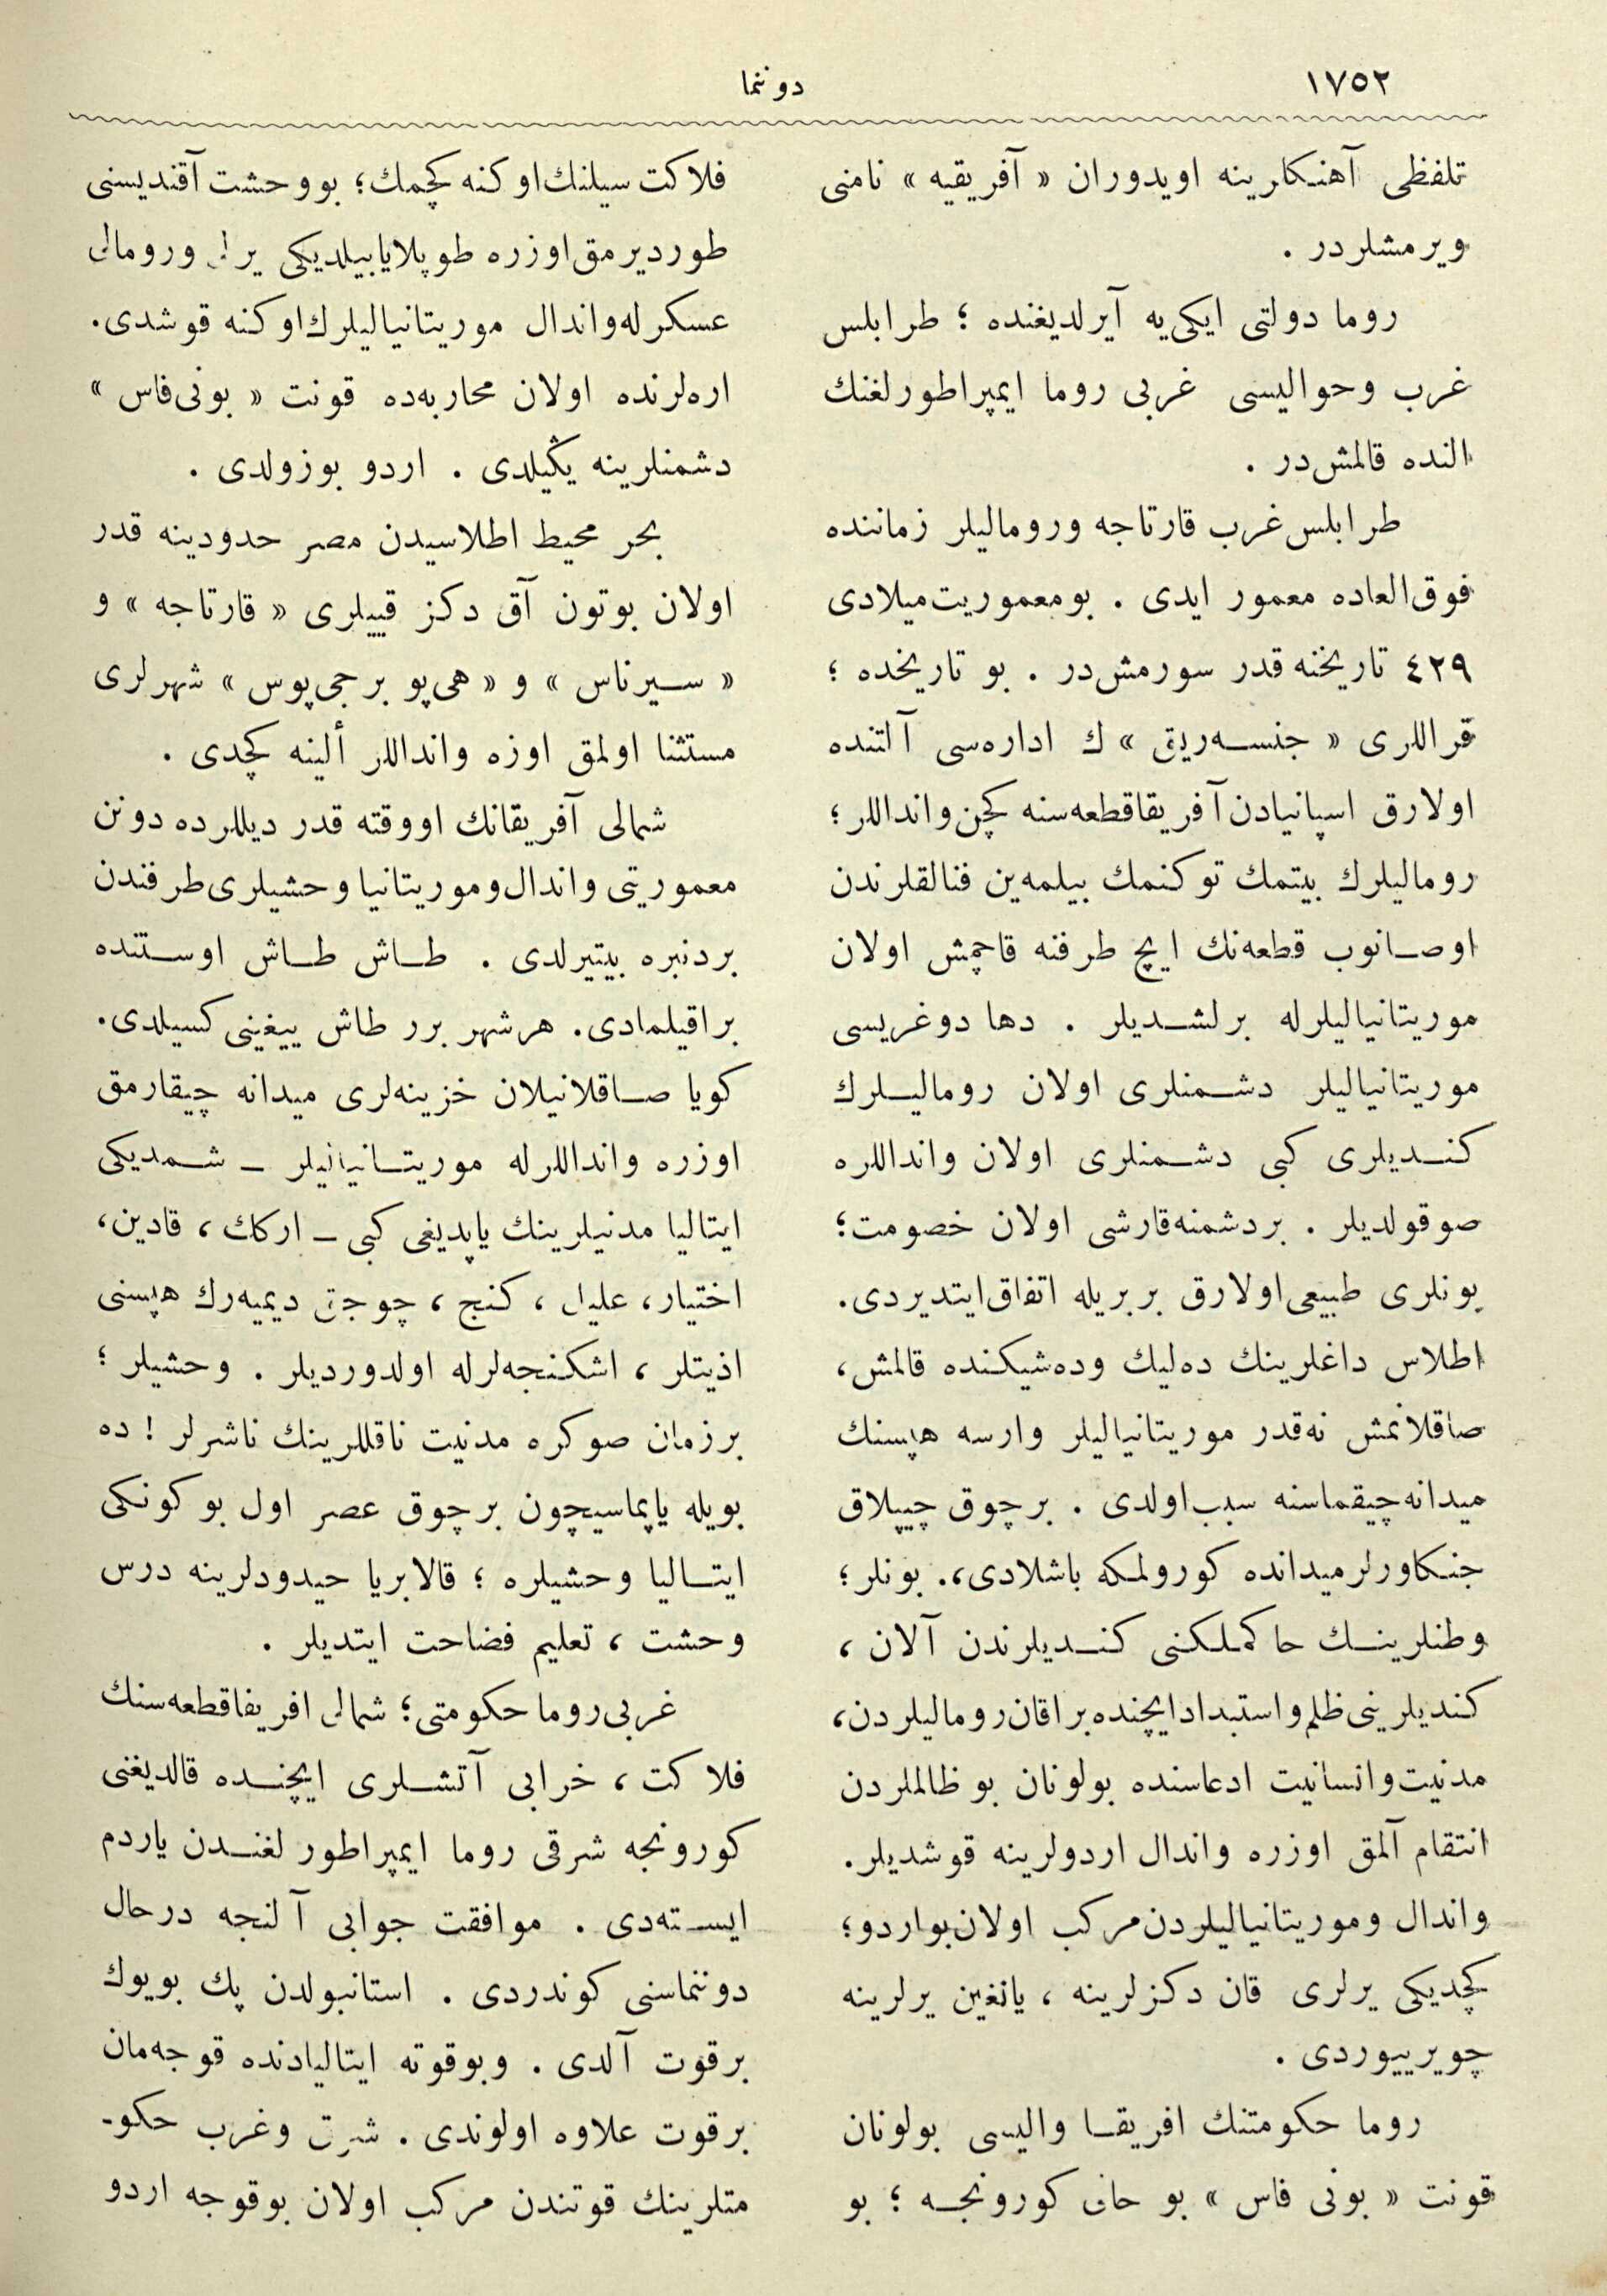 ١٧٥٢
دونـنما
تلفظى آهنـكارينه اويدوران « آفريقيه » نامنى
ويرمشلردر .
روما دولتى ايكى‌يه آيرلديغنده ؛ طرابلس
غرب وحواليسى غربى روما ايمپراطورلغنك
النده قالمش‌در .
طرابلس غرب قارتاجه وروماليلر زماننده
فوق‌العاده معمور ايدى . بومعموريت ميلادى
٤٢٩ تاريخنه قدر سورمش‌در . بو تاريخده ؛
قراللرى « جنسـه‌ريق » ك اداره‌سى آلتنده
اولارق اسپانيادن آفريقاقطعه‌سنه كچن وانداللر ؛
روماليلرك بيتمك توكنمك بيلمه‌ين فنالقلرندن
اوصـانوب قطعه‌نك ايچ طرفنه قاچمش اولان
موريتانياليلرله برلشـديلر . دها دوغريسى
موريتانياليلر دشـمنلرى اولان روماليـلرك
كنـديلرى كبى دشـمنلرى اولان وانداللره
صوقولديلر . بردشمنه‌قارشى اولان خصومت؛
بونلرى طبيعى‌اولارق بربريله اتفاق‌ايتديردى.
اطلاس داغلرينك ده‌ليك وده‌شيكنده قالمش،
صاقلانمش نه‌قدر موريتانياليلر وارسه هپسنك
ميدانه‌چيقماسنه سبب‌اولدى . برچوق چيپلاق
جنـكاورلرميدانده كورولمكه باشلادى،. بونلر؛
وطنلرينـك حاكملـكنى كنـديلرندن آلان ،
كنديلرينى ظلم‌واستبدادايچنده‌براقان‌روماليلردن،
مدنيت‌وانسانيت ادعاسنده بولونان بو ظالملردن
انتقام آلمق اوزره واندال اردولرينه قوشديلر.
واندال وموريتانياليلردن‌مركب اولان‌بواردو؛
كچديكى يرلرى قان دكزلرينه ، يانغين يرلرينه
چويرييوردى .
روما حكومتنك افريقـا واليسى بولونان
قونت « بونى فاس » بو حالى كورونجـه ؛ بو
فلاكت سيلنك‌اوكنه كچمك؛ بووحشت‌آقنديسنى
طورديرمق‌اوزره طوپلايابيلديكى يرلى ورومالى
عسكرله‌واندال موريتانياليلرك‌اوكنه قوشدى.
اره‌لرنده اولان محاربه‌ده قونت « بونى‌فاس »
دشمنلرينه يڭيلدى . اردو بوزولدى .
بحر محيط اطلاسيدن مصر حدودينه قدر
اولان بوتون آق دكز قيیلرى « قارتاجه » و
« سـيرناس » و « هى‌پو برجى‌پوس » شهرلرى
مستثنا اولمق اوزه وانداللر ألينه كچدى .
شمالى آفريقانك اووقته قدر ديللرده دونن
معموريتى واندال‌وموريتانيا وحشيلرى‌طرفندن
بردنبره بيتيرلدى . طـاش طـاش اوسـتنده
براقيلمادى. هرشهر برر طاش ييغينى كسيلدى.
كويا صـاقلانيلان خزينه‌لرى ميدانه چيقارمق
اوزره وانداللرله موريتـانيانيلر ــ شـمديكى
ايتاليا مدنيلرينك ياپديغى كبى ــ اركك ، قادين،
اختيار، عليل ، كنج ، چوجق ديميه‌رك هپسنى
اذيتلر ، اشكنجه‌لرله اولدورديلر . وحشيلر ؛
برزمان صوكره مدنيت ناقللرينك ناشرلر ! ده
بويله ياپماسيچون برچوق عصر اول بو كونكى
ايتـاليا وحشيلره ؛ قالابريا حيدودلرينه درس
وحشت ، تعليم فضاحت ايتديلر .
غربى‌روما حكومتى؛ شمالى افريفاقطعه‌سنك
فلاكت ، خرابى آتشـلرى ايچنـده قالديغنى
كورونجه شرقى روما ايمپراطور لغنـدن ياردم
ايسـته‌دى . موافقت جوابى آلنجه درحال
دوننماسنى كوندردى . استانبولدن پك بويوك
برقوت آلدى . وبوقوته ايتاليادنده قوجه‌مان
برقوت علاوه اولوندى . شرق وغرب حكو-
متلرينك قوتندن مركب اولان بوقوجه اردو